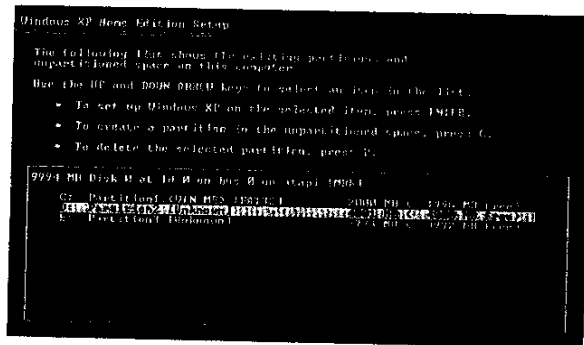 Windows XP Home Edition Setup
The following list shows the existing partitions and
unpartitioned space on this computer.
Use the UP and DOWN ARROW keys to select an item in the list.
• To set up Windows XP on the selected item, press ENTER.
• To create a partition in the unpartitioned space, press C.
• To delete the selected partition, press D.
9994 MB Disk 0 at Id 0 on bus 0 on atapi [MBR]
C: Partition1 [FAT32] 2000 MB ( 1996 MB free)
Partition2 [Unknown]
E: Partition3 [Unknown] MB ( MB free)